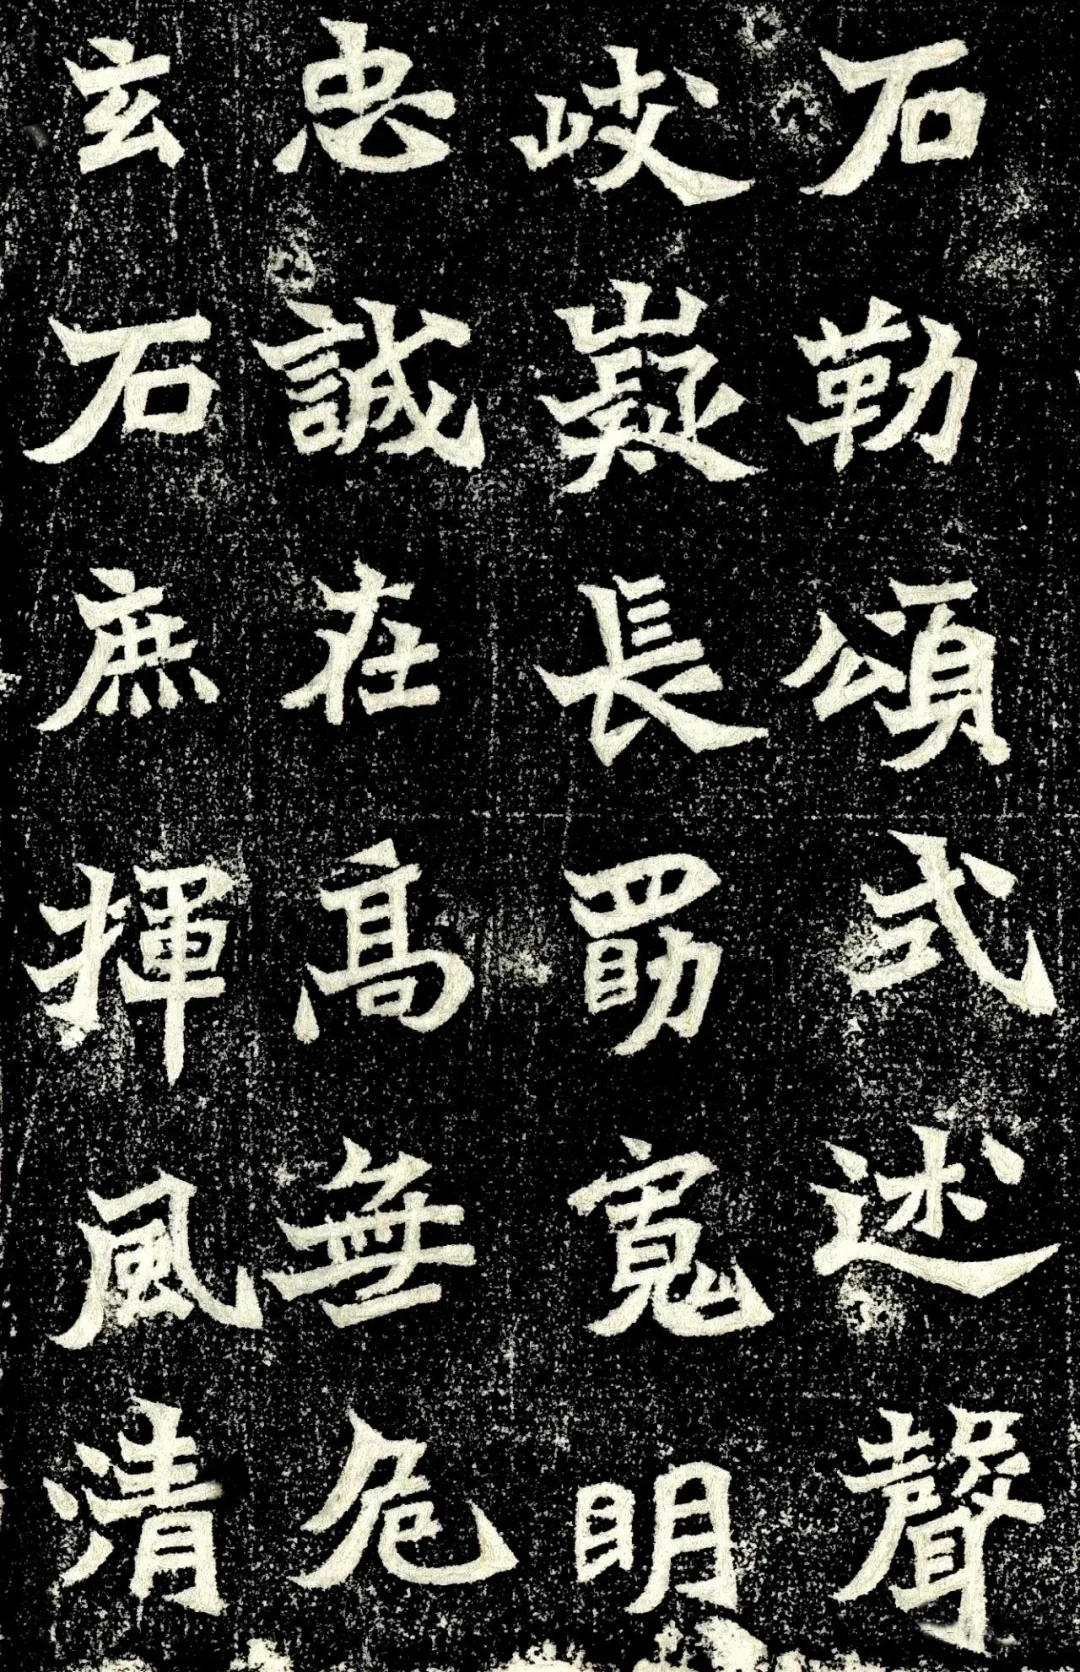 石勒頌式述聲
岐嶷長勗寬明
忠誠在高無危
玄石庶揮風清